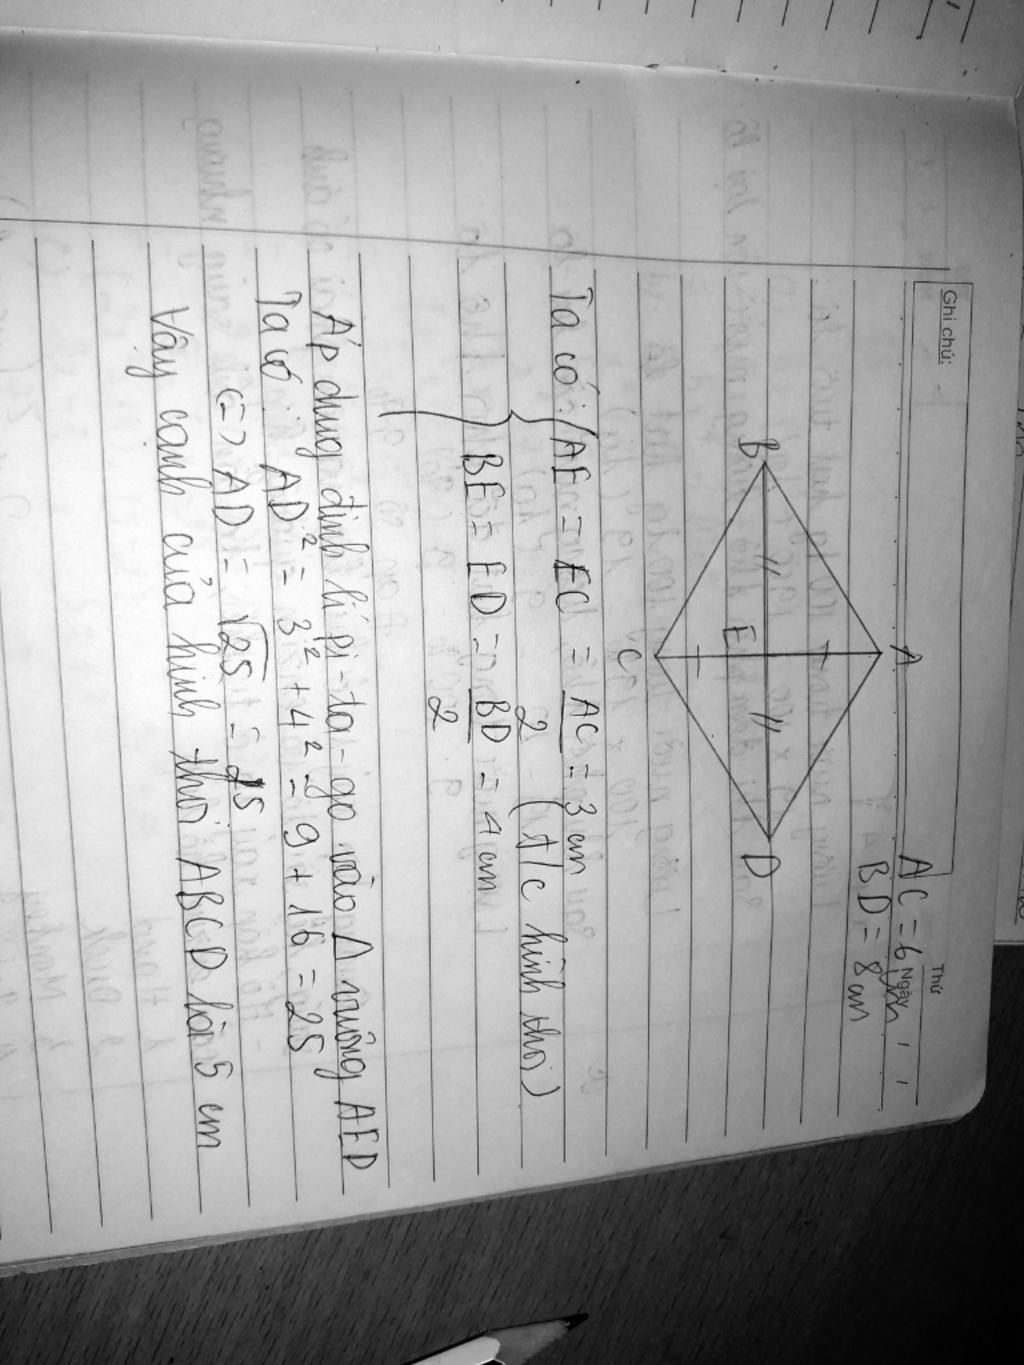 Ghi chú:
Thứ
Ngày
AC = 6 cm
BD = 8 cm
A
B
E
D
C
Ta có: AE = EC = AC/2 = 3 cm
(t/c hình thoi)
BE = ED = BD/2 = 4 cm
Áp dụng định lí pi-ta-go vào Δ vuông AED
Ta có AD² = 3² + 4² = 9 + 16 = 25
<=> AD = √25 = 5
Vậy cạnh của hình thoi ABCD là 5 cm